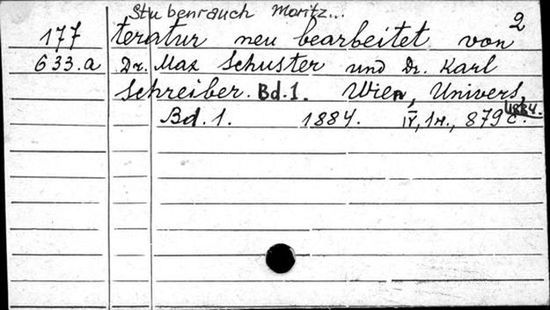 Stubenrauch Moritz...
2
177 teratur neu bearbeitet von
633.a Dr. Max Schuster und Dr. Karl
Schreiber. Bd.1. Wien, Univers.
1884.
Bd. 1. 1884. IV, 1H., 879 c.